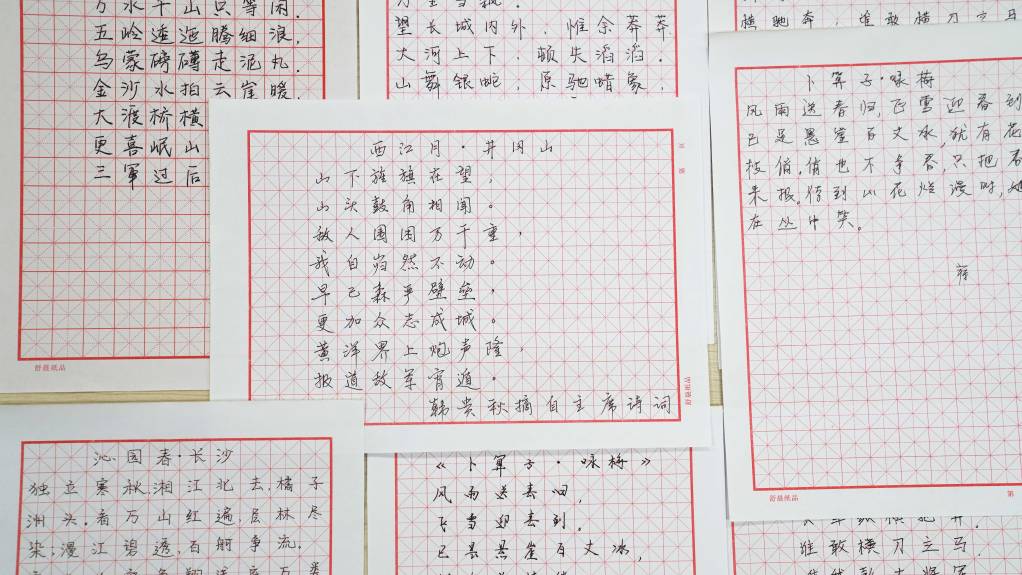 万水千山只等闲.
五岭逶迤腾细浪,
乌蒙磅礴走泥丸.
金沙水拍云崖暖,
大渡桥横
更喜岷山
三军过后
舒晨纸品
望长城内外,惟余莽莽
大河上下,顿失滔滔.
山舞银蛇,原驰蜡象,
横驰奔,谁敢横刀立马
卜算子·咏梅
风雨送春归,飞雪迎春到
已是悬崖百丈冰,犹有花
枝俏.俏也不争春,只把春
来报.待到山花烂漫时,她
在丛中笑。
舒晨纸品
第
西江月·井冈山
山下旌旗在望,
山头鼓角相闻。
敌人围困万千重,
我自岿然不动。
早已森严壁垒,
更加众志成城。
黄洋界上炮声隆,
报道敌军宵遁。
韩贵秋摘自主席诗词
舒晨纸品
沁园春·长沙
独立寒秋,湘江北去,橘子
洲头.看万山红遍,层林尽
染;漫江碧透,百舸争流.
《卜算子·咏梅》
风雨送春归,
飞雪迎春到.
已是悬崖百丈冰,
谁敢横刀立马.